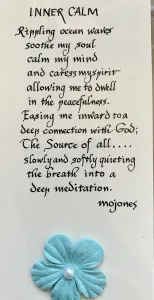 INNER CALM
Rippling ocean waves
soothe my soul
calm my mind
and caress my spirit
allowing me to dwell
in the peacefulness.
Easing me inward to a
deep connection with God;
The Source of all....
slowly and softly quieting
the breath into a
deep meditation.
mojones